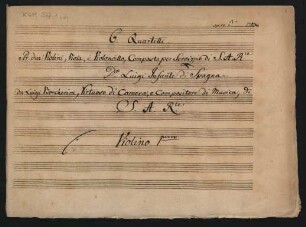 6 Quartetti
Per due Violini, Viola, e Violoncello, Composti per Servizio di S. A. R.le
Dn Luigi Infante di Spagna
da Luigi Boccherini, Virtuoso di Camera, e Compositore di Musica, di
S. A. R.le
Violino Primo